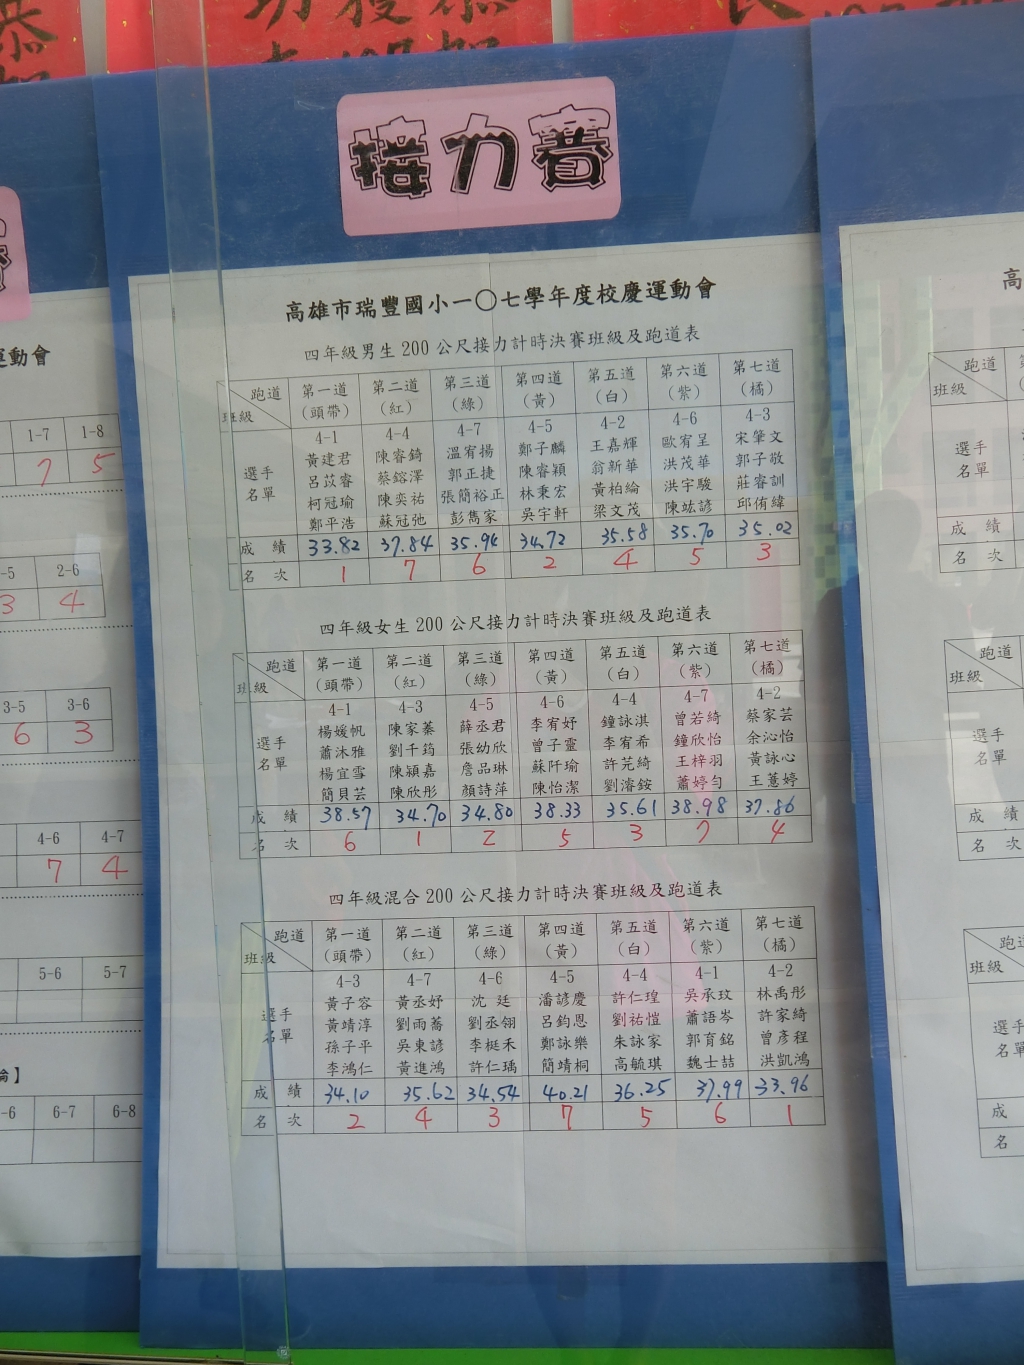 接力賽
高雄市瑞豐國小一〇七學年度校慶運動會
四年級男生200公尺接力計時決賽班級及跑道表
跑道 第一道 第二道 第三道 第四道 第五道 第六道 第七道
班級 (頭帶) (紅) (綠) (黃) (白) (紫) (橘)
4-1 4-4 4-7 4-5 4-2 4-6 4-3
選手 黃建君 陳睿錡 溫宥揚 鄭子麟 王嘉輝 歐宥呈 宋肇文
名單 呂苡睿 蔡鎔澤 郭正捷 陳睿穎 翁新華 洪茂華 郭子敬
柯冠瑜 陳奕祐 張簡裕正 林秉宏 黃柏綸 洪宇駿 莊睿訓
鄭平浩 蘇冠弛 彭雋家 吳宇軒 梁文茂 陳竑諺 邱侑緯
成績 33.82 37.84 35.94 34.72 35.58 35.70 35.02
名次 1 7 6 2 4 5 3
四年級女生200公尺接力計時決賽班級及跑道表
跑道 第一道 第二道 第三道 第四道 第五道 第六道 第七道
班級 (頭帶) (紅) (綠) (黃) (白) (紫) (橘)
4-1 4-3 4-5 4-6 4-4 4-7 4-2
選手 楊媛帆 陳家蓁 薛丞君 李宥妤 鐘詠淇 曾若綺 蔡家芸
名單 蕭沐雅 劉千筠 張幼欣 曾子靈 李宥希 鐘欣怡 余沁怡
楊宜雪 陳穎嘉 詹品琳 蘇阡瑜 許芫綺 王梓羽 黃詠心
簡貝芸 陳欣彤 顏詩萍 陳怡潔 劉濬銨 蕭婷勻 王薏婷
成績 38.57 34.70 34.80 38.33 35.61 38.98 37.86
名次 6 1 2 5 3 7 4
四年級混合200公尺接力計時決賽班級及跑道表
跑道 第一道 第二道 第三道 第四道 第五道 第六道 第七道
班級 (頭帶) (紅) (綠) (黃) (白) (紫) (橘)
4-3 4-7 4-6 4-5 4-4 4-1 4-2
選手 黃子容 黃丞妤 沈廷 潘諺慶 許仁瑝 吳承玟 林禹彤
名單 黃靖淳 劉雨蕎 劉丞翎 呂鈞恩 劉祐愷 蕭語岑 許家綺
孫子平 吳東諺 李梃禾 鄭詠樂 朱詠家 郭育銘 曾彥程
李鴻仁 黃進鴻 許仁瑀 簡靖桐 高毓琪 魏士喆 洪凱鴻
成績 34.10 35.62 34.54 40.21 36.25 37.99 33.96
名次 2 4 3 7 5 6 1
運動會
1-7 1-8
7 5
-5 2-6
3 4
3-5 3-6
6 3
4-6 4-7
7 4
5-6 5-7
-6 6-7 6-8
高
跑道
班級
選手
名單
成績
名次
跑道
班級
選手
名單
成績
名次
班級
選手
名單
成
名